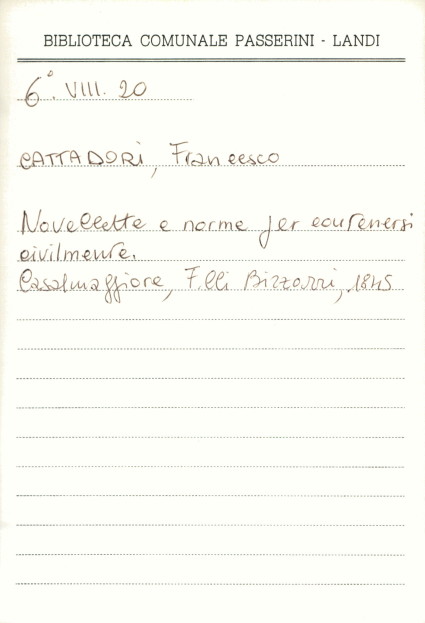 BIBLIOTECA COMUNALE PASSERINI - LANDI
6°. VIII. 20
CATTADORI, Francesco
Novellette e norme per contenersi
civilmente.
Casalmaggiore, F.lli Bizzarri, 1845